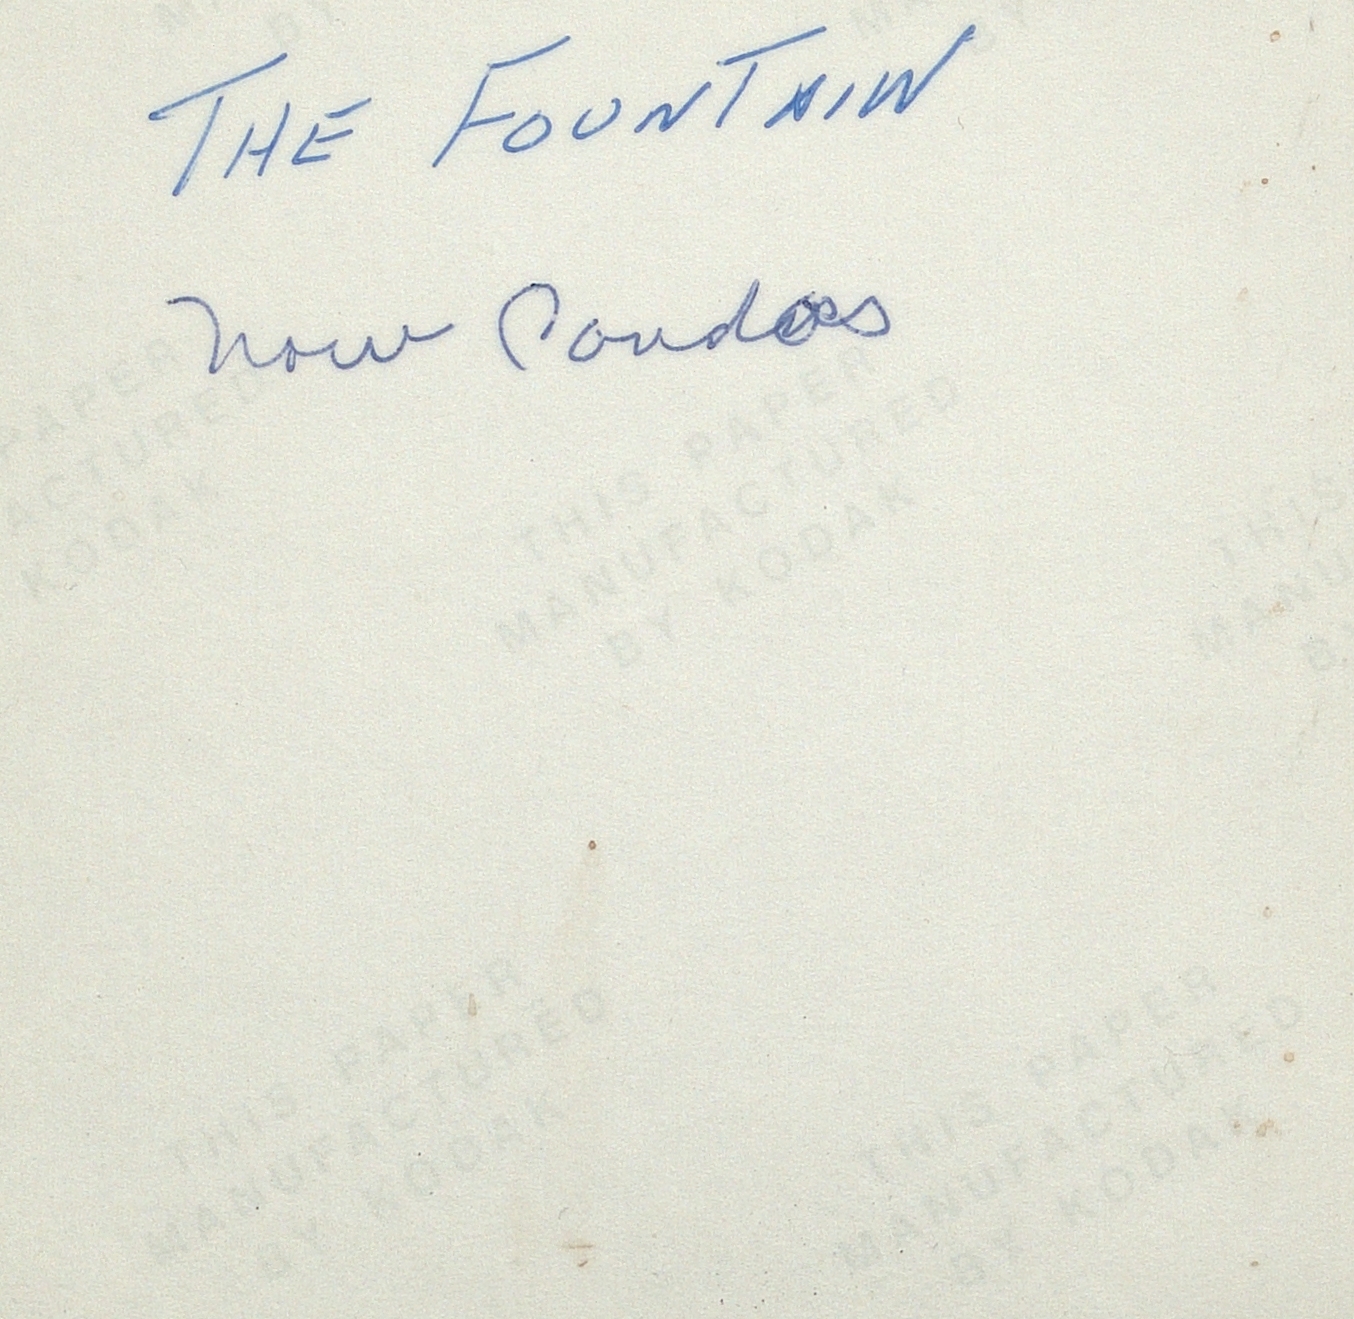 THE FOUNTAIN
Now Condos
PAPER
ACTURED
KODAK
THIS PAPER
MANUFACTURED
BY KODAK
THIS
MANU
B
THIS PAPER
MANUFACTURED
BY KODAK
THIS PAPER
MANUFACTURED
BY KODAK